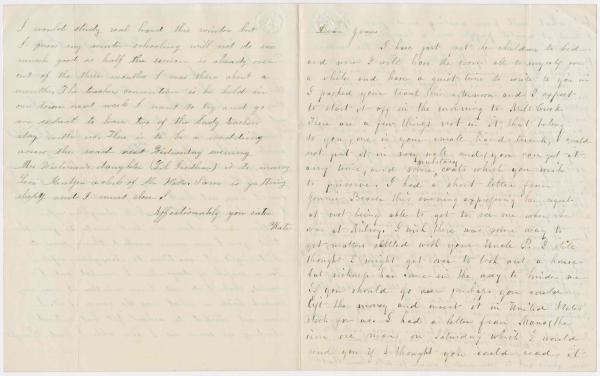 I would study real hard this winter but
I guess my winter schooling will not do me
much good as half the session is already over
out of the three months I was there about a
month. The teacher convention is to be held in
our town next week I want to try and go
we expect to have two of the lady teachers
stay with us. There is to be a wedding
across the road next Wednesday evening
Mrs daughter is to marry
Sam is getting
sleepy and I must close
Affectionately your sister
Kate
Dear Jessie
I have just put the children to bed
and now I will have the room all to myself for
a while and have a quiet time to write to you in
I packed your trunk this afternoon and I expect
to start it off in the morning to Mill Creek
There are a few things not in it that belong
to you, one is your small hand trunk, I could
not put it in very well unless you can get at
any time, and some military coats which you wish
to preserve. I had a short letter from
Bessie this evening expressing her regrets
at not being able to get to see me when she
was at I wish there was some way to
get matters settled with your Uncle P. I still
thought I might get over to look out a house
but sickness has come in the way to hinder me
If you should go over perhaps you could
lift the money and invest it in United States
stock for me I had a letter from Mama
on Saturday which I would
send you if I thought you could read it